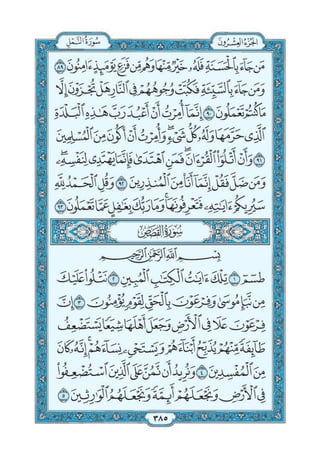 الجزء العشرون سورة النمل
مَن جَآءَ بِٱلْحَسَنَةِ فَلَهُۥ خَيْرٌ مِّنْهَا وَهُم مِّن فَزَعٍ يَوْمَئِذٍ ءَامِنُونَ ٨٩
وَمَن جَآءَ بِٱلسَّيِّئَةِ فَكُبَّتْ وُجُوهُهُمْ فِى ٱلنَّارِ هَلْ تُجْزَوْنَ إِلَّا
مَا كُنتُمْ تَعْمَلُونَ ٩٠ إِنَّمَآ أُمِرْتُ أَنْ أَعْبُدَ رَبَّ هَٰذِهِ ٱلْبَلْدَةِ
ٱلَّذِى حَرَّمَهَا وَلَهُۥ كُلُّ شَىْءٍ ۖ وَأُمِرْتُ أَنْ أَكُونَ مِنَ ٱلْمُسْلِمِينَ
٩١ وَأَنْ أَتْلُوَا۟ ٱلْقُرْءَانَ ۖ فَمَنِ ٱهْتَدَىٰ فَإِنَّمَا يَهْتَدِى لِنَفْسِهِۦ ۖ
وَمَن ضَلَّ فَقُلْ إِنَّمَآ أَنَا۠ مِنَ ٱلْمُنذِرِينَ ٩٢ وَقُلِ ٱلْحَمْدُ لِلَّهِ
سَيُرِيكُمْ ءَايَٰتِهِۦ فَتَعْرِفُونَهَا ۚ وَمَا رَبُّكَ بِغَٰفِلٍ عَمَّا تَعْمَلُونَ ٩٣
سورة القصص
بِسْمِ ٱللَّهِ ٱلرَّحْمَٰنِ ٱلرَّحِيمِ
طسٓمٓ ١ تِلْكَ ءَايَٰتُ ٱلْكِتَٰبِ ٱلْمُبِينِ ٢ نَتْلُوا۟ عَلَيْكَ
مِن نَّبَإِ مُوسَىٰ وَفِرْعَوْنَ بِٱلْحَقِّ لِقَوْمٍ يُؤْمِنُونَ ٣ إِنَّ
فِرْعَوْنَ عَلَا فِى ٱلْأَرْضِ وَجَعَلَ أَهْلَهَا شِيَعًا يَسْتَضْعِفُ
طَآئِفَةً مِّنْهُمْ يُذَبِّحُ أَبْنَآءَهُمْ وَيَسْتَحْىِۦ نِسَآءَهُمْ ۚ إِنَّهُۥ كَانَ
مِنَ ٱلْمُفْسِدِينَ ٤ وَنُرِيدُ أَن نَّمُنَّ عَلَى ٱلَّذِينَ ٱسْتُضْعِفُوا۟
فِى ٱلْأَرْضِ وَنَجْعَلَهُمْ أَئِمَّةً وَنَجْعَلَهُمُ ٱلْوَٰرِثِينَ ٥
٣٨٥